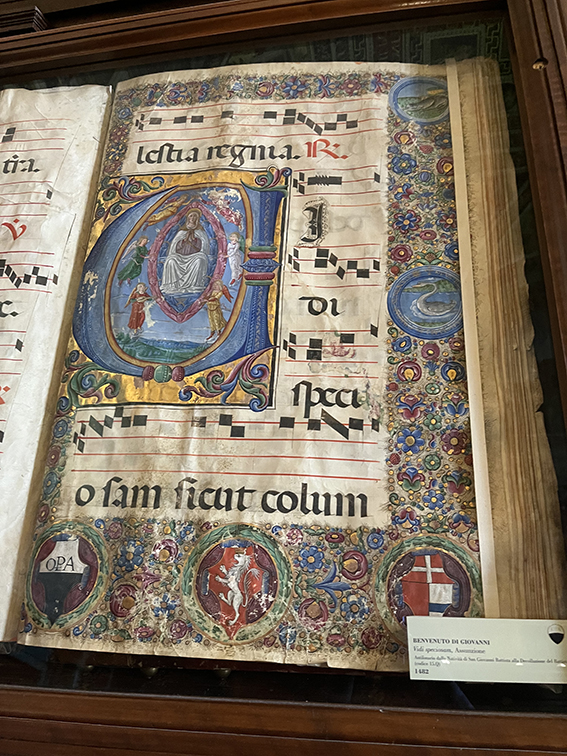 lestia regnia. R.
V I
di
speci
o sam sicut colum
OPA
BENVENUTO DI GIOVANNI
Vidi speciosam, Assunzione
Antifonario dalla Natività di San Giovanni Battista alla Decollazione del
1482